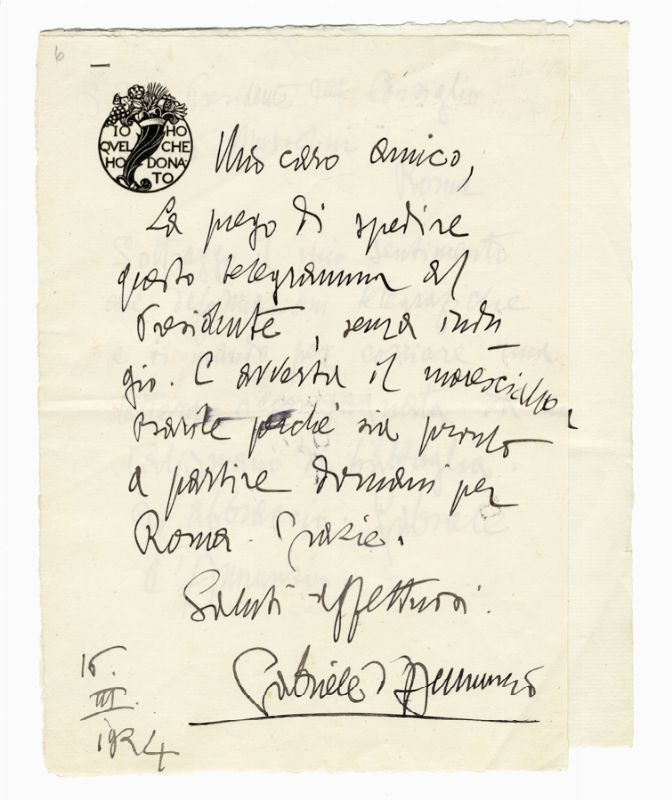 6
IO HO
QVEL CHE
HO DONA-
TO
Mio caro amico,
La prego di spedire
questo telegramma al
Presidente, senza indu
gio. E avverta il maresciallo
perché sia pronto
a partire domani per
Roma. Grazie.
Saluti affettuosi.
Gabriele d'Annunzio
16.
III.
1924